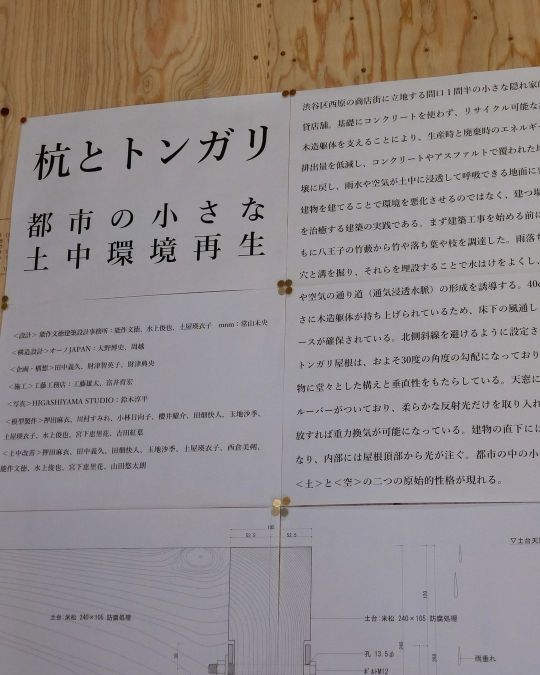 杭とトンガリ
都市の小さな
土中環境再生
<設計>能作文徳建築設計事務所：能作文徳、水上俊也、土屋瑛衣子 mnm：常山未央
<構造設計>オーノJAPAN：大野博史、周越
<企画・構想>田中義久、財津智英子、財津典央
<施工>工藤工務店：工藤雄太、富井将宏
<写真>HIGASHIYAMA STUDIO：鈴木淳平
<模型製作>押田麻衣、川村すみれ、小林日向子、櫻井耀介、田畑快人、玉地沙季、
土屋瑛衣子、水上俊也、宮下恵里花、吉田紅葉
<土中改善>押田麻衣、田中義久、田畑快人、玉地沙季、土屋瑛衣子、西倉美朔、
能作文徳、水上俊也、宮下恵里花、山田悠太朗
渋谷区西原の商店街に立地する間口1間半の小さな隠れ家的
貸店舗。基礎にコンクリートを使わず、リサイクル可能な
木造躯体を支えることにより、生産時と廃棄時のエネルギー
排出量を低減し、コンクリートやアスファルトで覆われた
壌に戻し、雨水や空気が土中に浸透して呼吸できる地面に
建物を建てることで環境を悪化させるのではなく、建つ場
を治癒する建築の実践である。まず建築工事を始める前に
ちに八王子の竹藪から竹や落ち葉や枝を調達した。雨落
穴と溝を掘り、それらを埋設することで水はけをよくし、
や空気の通り道（通気浸透水脈）の形成を誘導する。40c
さに木造躯体が持ち上げられているため、床下の風通し
ースが確保されている。北側斜線を避けるように設定さ
トンガリ屋根は、およそ30度の角度の勾配になっており
物に堂々とした構えと垂直性をもたらしている。天窓に
ルーバーがついており、柔らかな反射光だけを取り入れ
放すれば重力換気が可能になっている。建物の直下には
なり、内部には屋根頂部から光が注ぐ。都市の中の小
<土>と<空>の二つの原始的性格が現れる。
105
52.5 52.5
▽土台天
土台：米松 240×105 防腐処理
土台：米松 240×105 防腐処理
孔 13.5φ
ボルトM12
雨垂れ